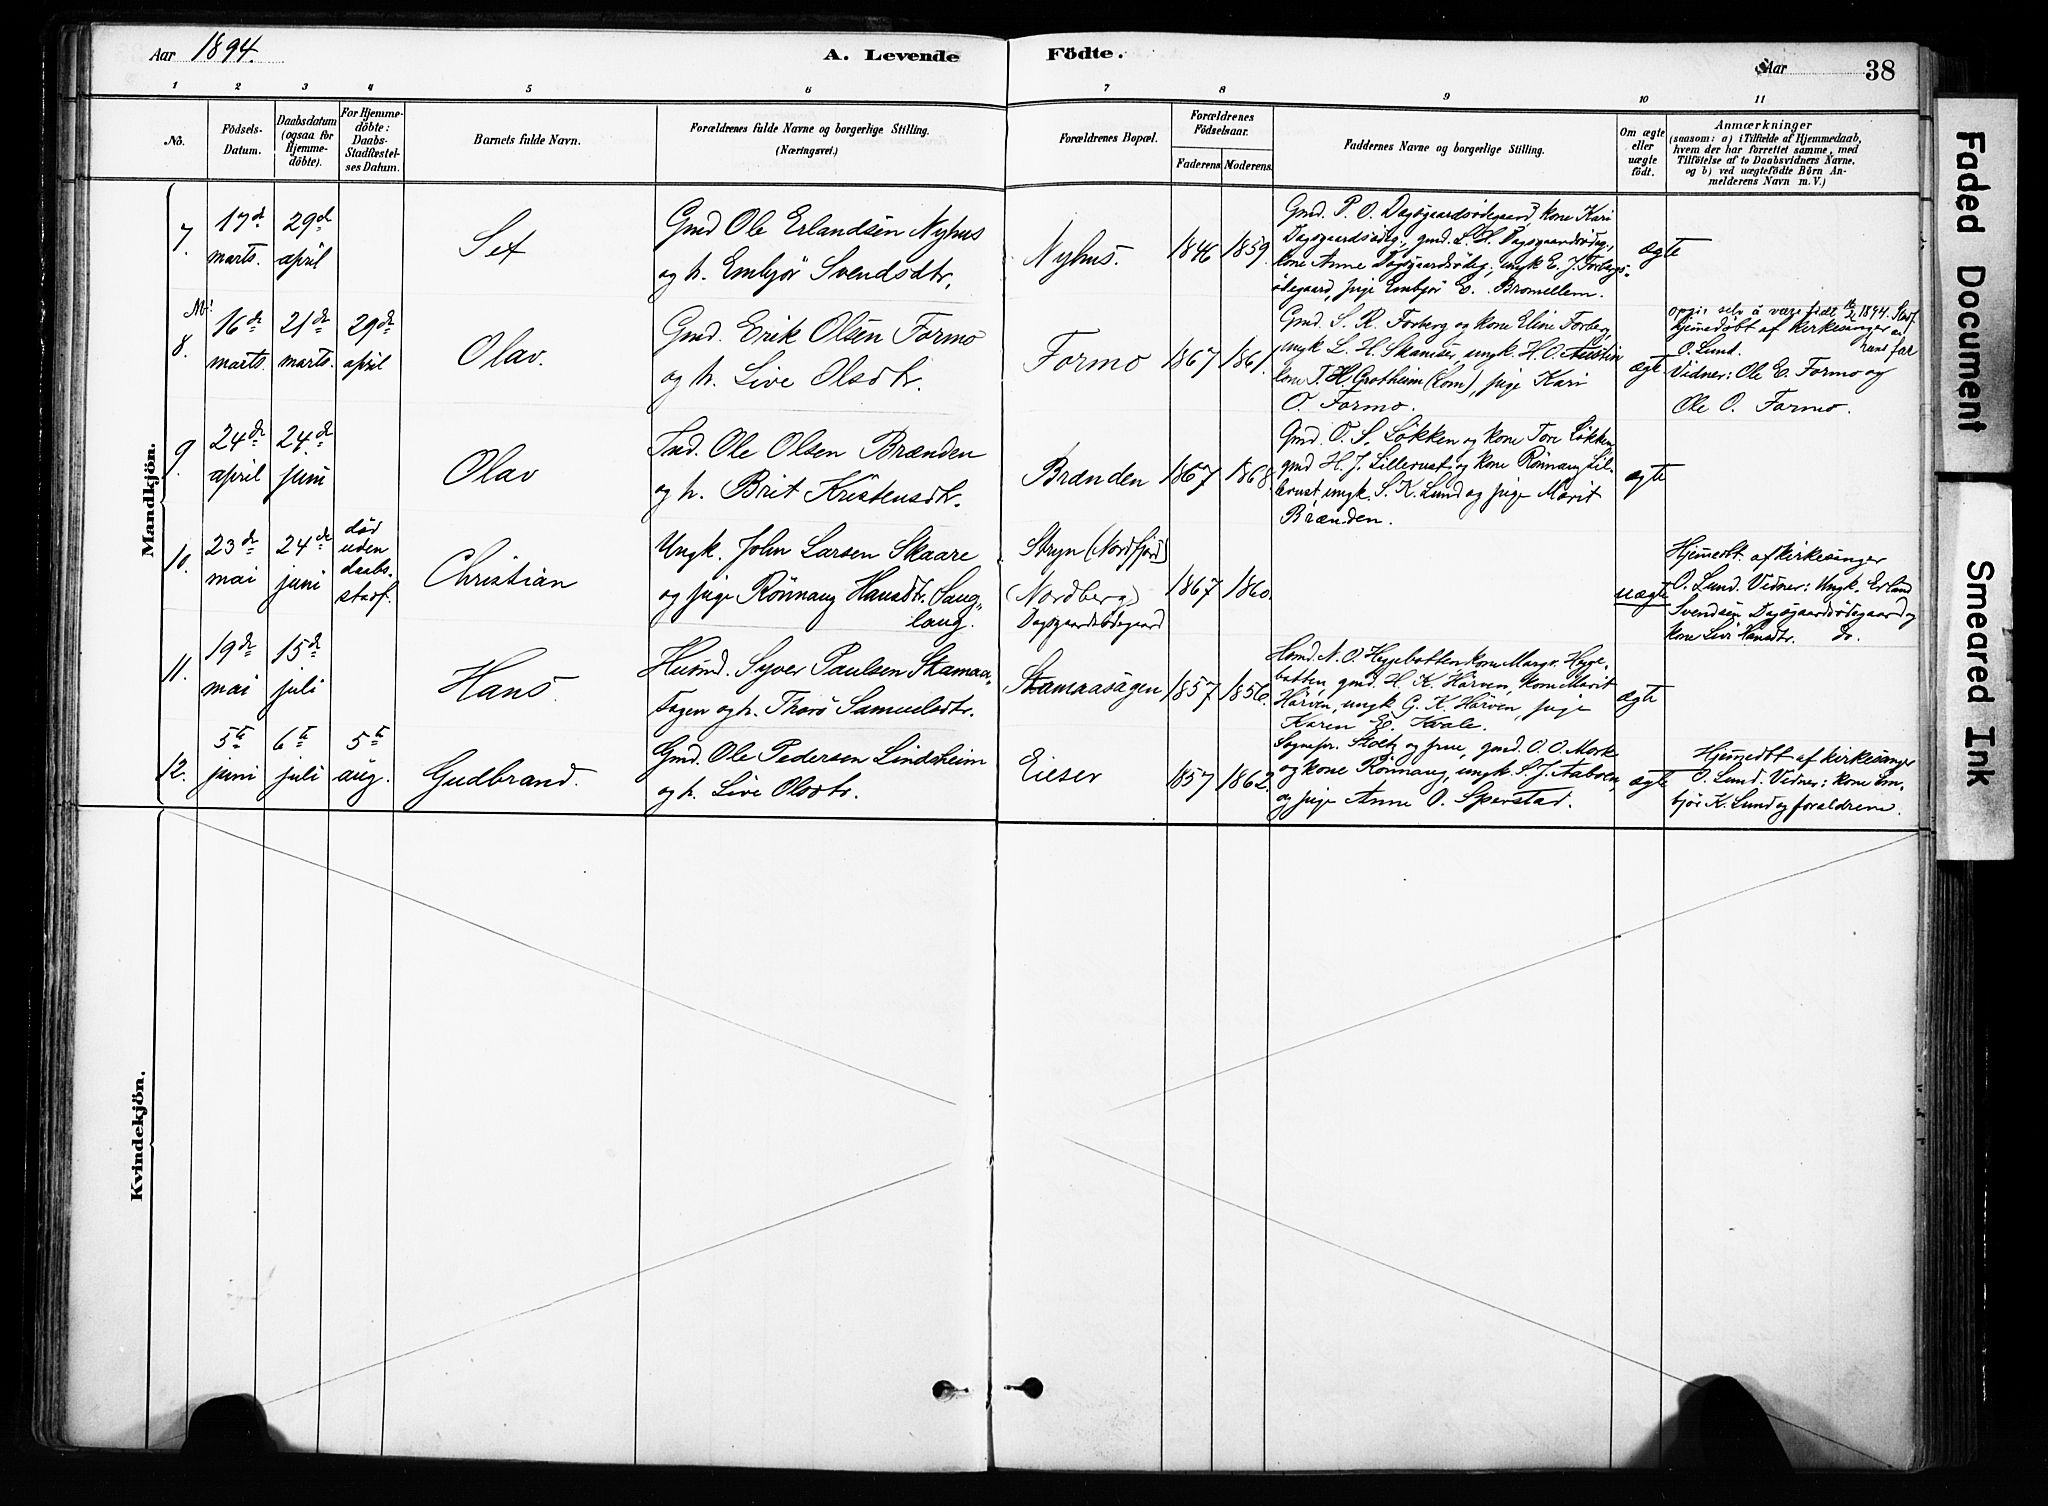 Aar 1894.
A. Levende
Födte.
Aar
38
1 2 3 4 5 6 7 8 9 10 11
No.
Födsels-
Datum.
Daabsdatum
(ogsaa for
Hjemme-
döbte).
For Hjemme-
döbte:
Daabs-
Stadfæstel-
ses Datum.
Barnets fulde Navn.
Forældrenes fulde Navne og borgerlige Stilling.
(Næringsvei.)
Forældrenes Bopæl.
Forældrenes
Födselsaar.
Faderens
Moderens.
Faddernes Navne og borgerlige Stilling.
Om ægte
eller
uægte
födt.
Anmærkninger
(saasom: a) i Tilfælde af Hjemmedaab,
hvem der har forrettet samme, med
Tilföielse af to Daabsvidners Navne,
og b) ved uægtefödte Börn An-
melderens Navn m. V.)
Mandkjön.
7.
17de
marts.
29d
april
Set
Gmd Ole Erlandsen Nyhus
og h. Embjör Svendsdtr.
Nyhus.
1846
1859.
Gmd. P. O. Dagsgaardsödegaard, kone Kari
Dagsgaardsödeg., gmd. S. S. Dagsgaardsödeg.,
kone Anne Dagsgaardsödeg., ungk E. J. Forbergs-
ödegaard, pige Embjör E. Bromellem.
ægte
8.
16de
marts.
21de
marts.
29de
april
Olav.
Gmd. Erik Olsen Formo
og h. Live Olsdtr.
Formo
1867
1861.
Gmd. S. R. Forberg og kone Eline Forberg,
ungk L. H. Skamsar, ungk. H. O.
kone T. H. Grotheim (Lom), pige Kari
O. Formo.
ægte
opgir selv å være født 1894.
hjemedöbt af kirkesanger
hans far
O. Lund.
Vidner: Ole E. Formo og
Ole O. Formo.
9.
24de
april
24de
juni
Olav
Ind. Ole Olsen Brænden
og h. Brit Kristensdtr.
Brænden
1867
1868
Gmd. O. S. Løkken og kone Tore Løkken,
gmd H. J. Lillerust og kone Rönnaug Lil-
lerust, ungk. S. K. Lund og pige Marit
Brænden.
ægte
10.
23de
mai
24de
juni
död
uden
daabs-
stadf.
Christian
Ungk. John Larsen Skaare
og pige Rönnaug Hansdtr. Saug-
laug.
Stryn (Nordfjord)
(Nordberg)
Dagsgaardsödegaard
1867
1860.
uægte
Hjemedbt. af kirkesanger
O. Lund. Vidner: Ungk. Erland
Svendsen Dagsgaardsödegaard og
kone Livi Hansdtr. do.
11.
19de
mai
15de
juli
Hans
Husmd. Syver Paulsen Skamaa-
sagen og h. Thore Samuelsdtr.
Skamaasagen
1857
1856.
Husmd. N. O. Heggebotten, kone Margr. Hegge-
botten, gmd. H. K. Hörven, kone Marit
Hörven, ungk G. K. Hörven, pige
Karen E. Kvale.
ægte
12.
5te
juni
6te
juli
5te
aug.
Gudbrand.
Gmd. Ole Pedersen Lindsheim
og h. Live Olsdtr.
Eieser
1857
1862.
Sognepr. Stoltz og frue, gmd. O. O. Mork
og kone Rönnaug, ungk. S. J. Aaboen,
og pige Anne O. Sperstad.
ægte
Hjemmedbt af kirkesanger
O. Lund. Vidner: kone Em-
björ K. Lund og forældrene.
Kvindekjön.
Faded Document
Smeared Ink